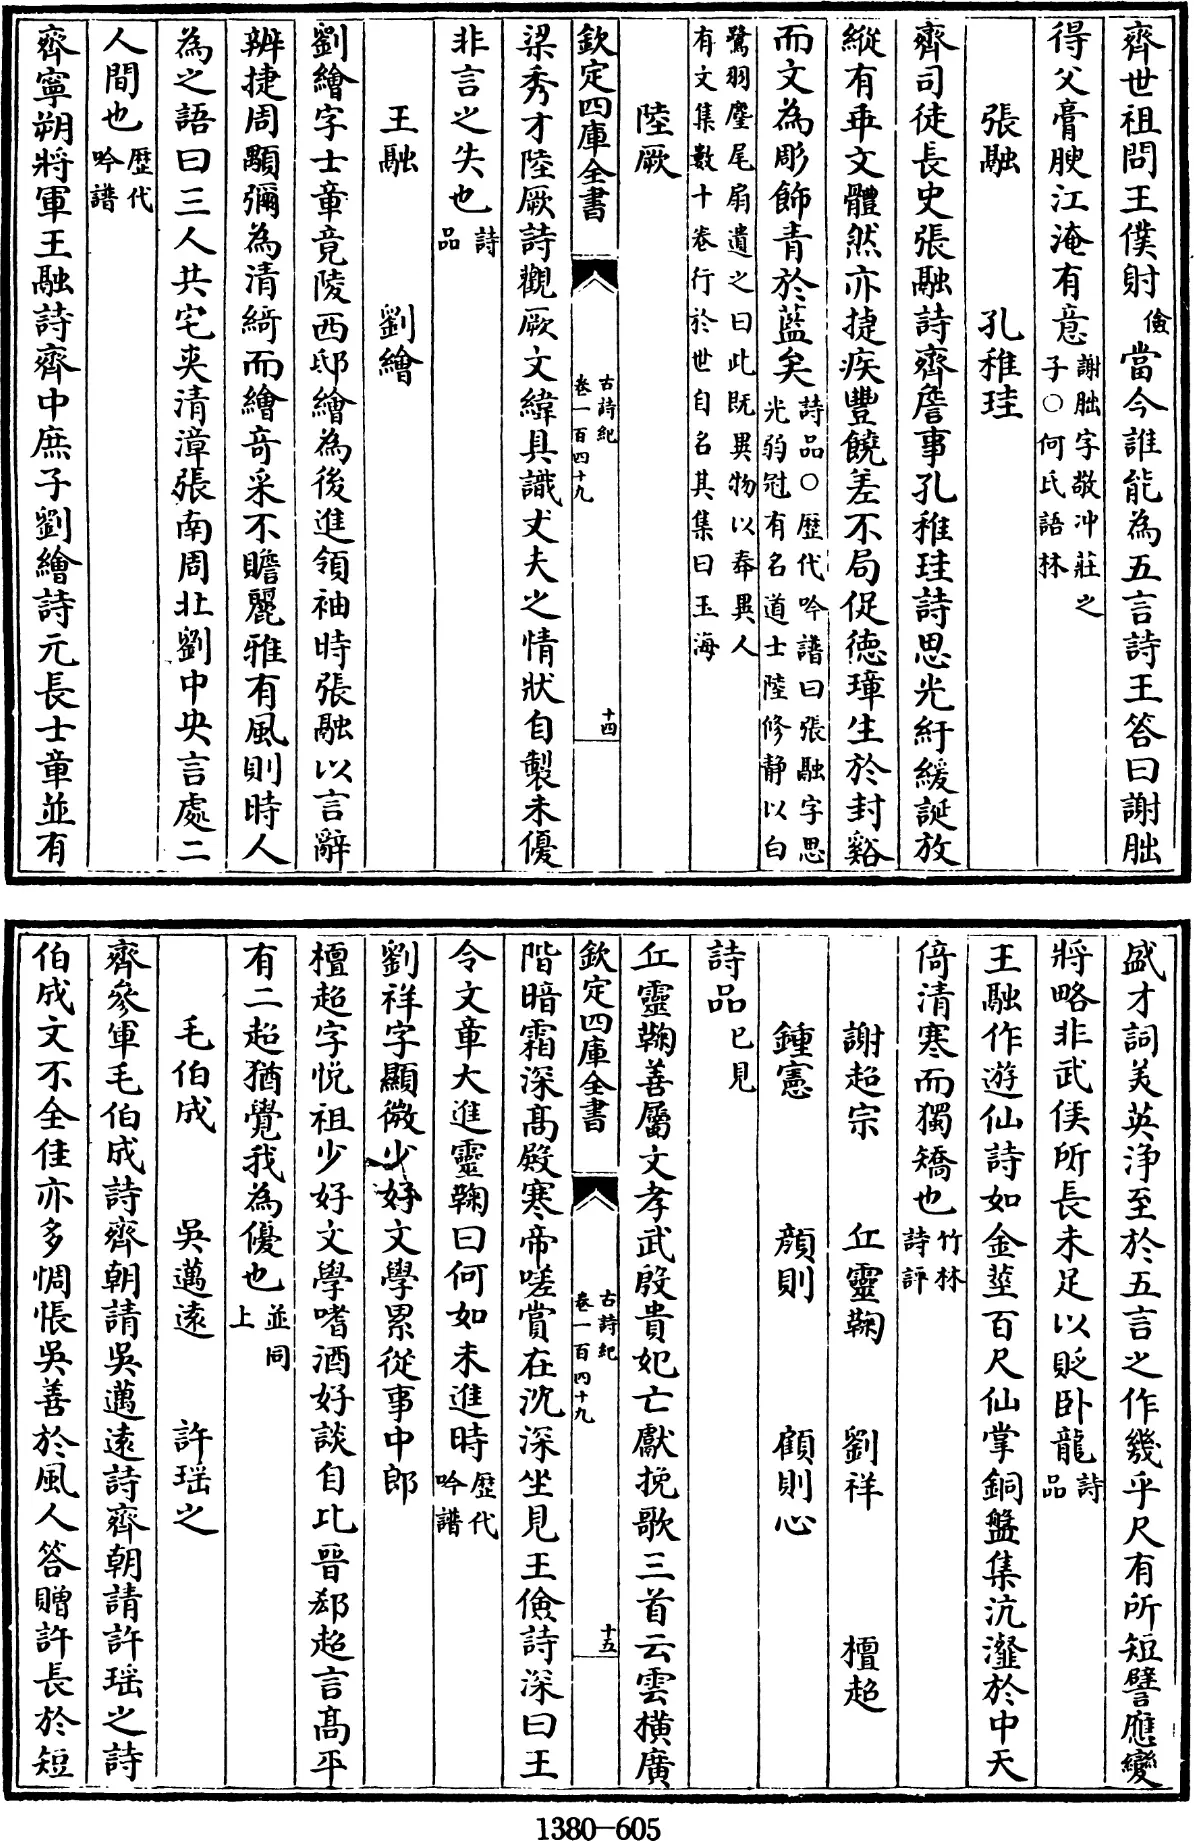 齊世祖問王僕射儉當今誰能為五言詩王答曰謝朏
得父膏腴江淹有意謝朏字敬冲莊之子○何氏語林
張融　孔稚珪
齊司徒長史張融詩齊詹事孔稚珪詩思光紆緩誕放
縱有乖文體然亦捷疾豐饒差不局促德璋生於封谿
而文為彫飾青於藍矣詩品○歴代吟譜曰張融字思光弱冠有名道士陸修静以白
鷺羽麈尾扇遺之曰此既異物以奉異人有文集數十卷行於世自名其集曰玉海
陸厥
欽定四庫全書　古詩紀卷一百四十九　十四
梁秀才陸厥詩觀厥文緯具識丈夫之情狀自製未優
非言之失也詩品
王融　劉繪
劉繪字士章竟陵西邸繪為後進領袖時張融以言辭
辨捷周顒彌為清綺而繪竒采不贍麗雅有風則時人
為之語曰三人共宅夾清漳張南周北劉中央言處二
人間也歴代吟譜
齊寜朔將軍王融詩齊中庶子劉繪詩元長士章並有
盛才詞美英浄至於五言之作幾乎尺有所短譬應變
將略非武侯所長未足以貶卧龍詩品
王融作遊仙詩如金莖百尺仙掌銅盤集沆瀣於中天
倚清寒而獨矯也竹林詩評
謝超宗　丘靈鞠　劉祥　檀超
鍾憲　顔則　顧則心
詩品已見
丘靈鞠善屬文孝武殷貴妃亡獻挽歌三首云雲橫廣
欽定四庫全書　古詩紀卷一百四十九　十五
階暗霜深髙殿寒帝嗟賞在沈深坐見王儉詩深曰王
令文章大進靈鞠曰何如未進時歴代吟譜
劉祥字顯微少好文學累從事中郎
檀超字悦祖少好文學嗜酒好談自比晉郄超言髙平
有二超猶覺我為優也並同上
毛伯成　吳邁逺　許瑶之
齊參軍毛伯成詩齊朝請吳邁逺詩齊朝請許瑶之詩
伯成文不全佳亦多惆悵吳善於風人答贈許長於短
1380-605